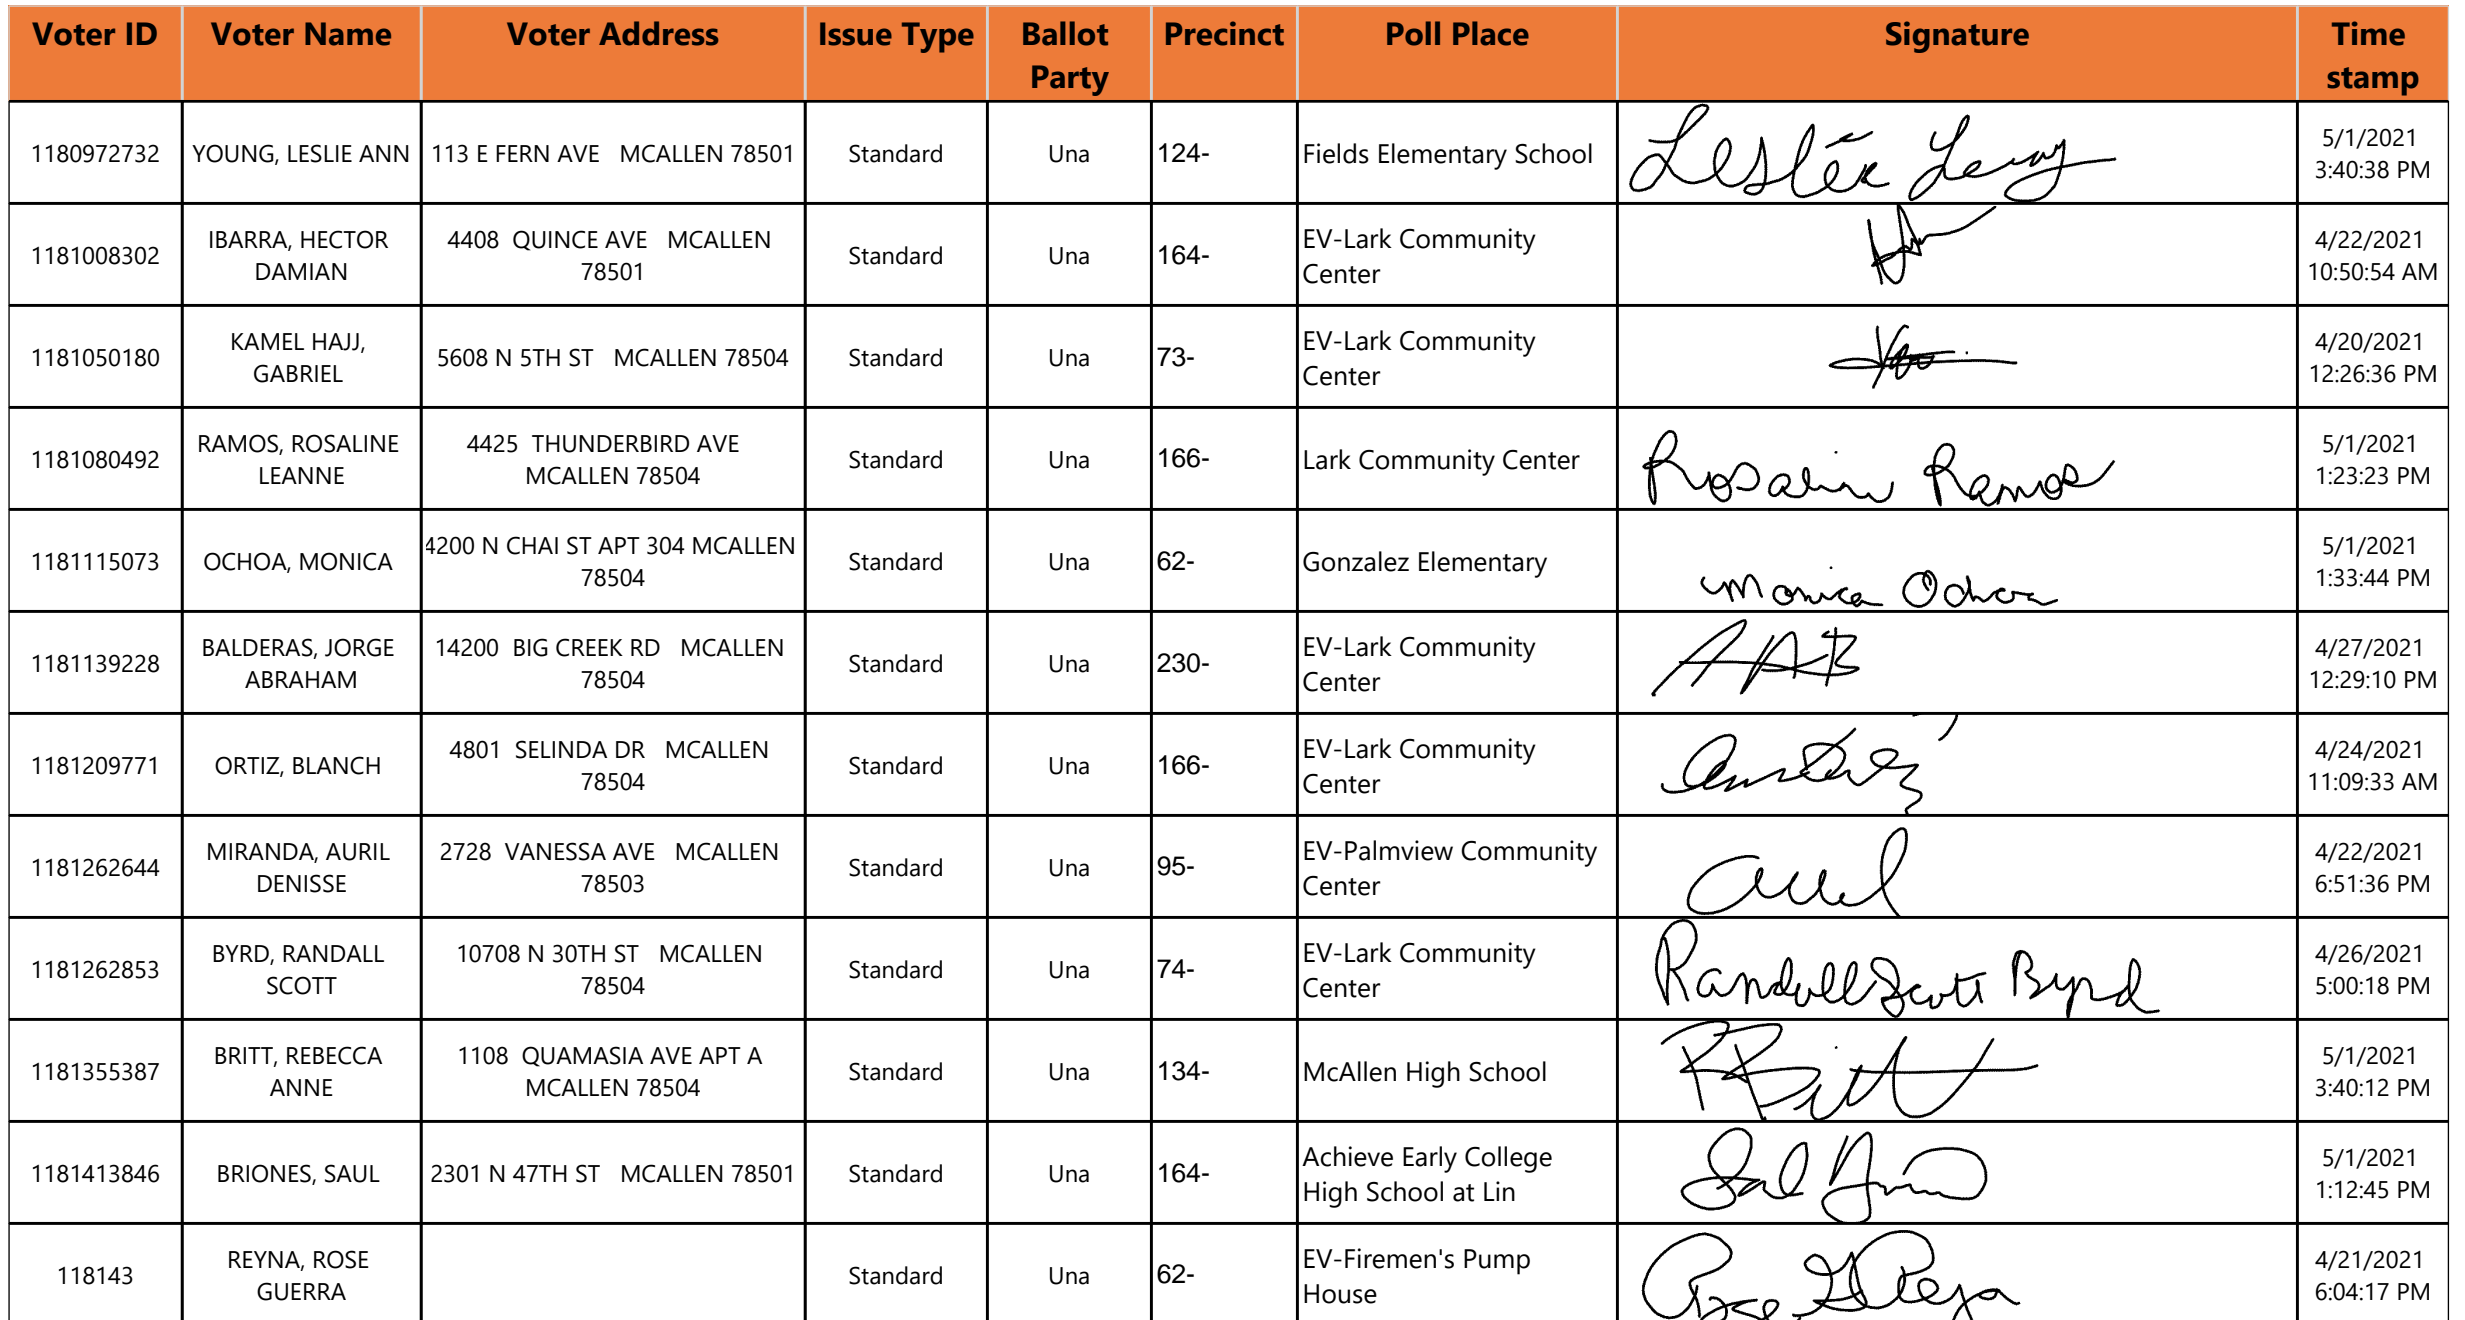 Voter ID Voter Name Voter Address Issue Type Ballot Party Precinct Poll Place Signature Time stamp
1180972732 YOUNG, LESLIE ANN 113 E FERN AVE MCALLEN 78501 Standard Una 124- Fields Elementary School Leslie 5/1/2021 3:40:38 PM
1181008302 IBARRA, HECTOR DAMIAN 4408 QUINCE AVE MCALLEN 78501 Standard Una 164- EV-Lark Community Center 4/22/2021 10:50:54 AM
1181050180 KAMEL HAJJ, GABRIEL 5608 N 5TH ST MCALLEN 78504 Standard Una 73- EV-Lark Community Center 4/20/2021 12:26:36 PM
1181080492 RAMOS, ROSALINE LEANNE 4425 THUNDERBIRD AVE MCALLEN 78504 Standard Una 166- Lark Community Center Ramos 5/1/2021 1:23:23 PM
1181115073 OCHOA, MONICA 4200 N CHAI ST APT 304 MCALLEN 78504 Standard Una 62- Gonzalez Elementary Monica Ochoa 5/1/2021 1:33:44 PM
1181139228 BALDERAS, JORGE ABRAHAM 14200 BIG CREEK RD MCALLEN 78504 Standard Una 230- EV-Lark Community Center 4/27/2021 12:29:10 PM
1181209771 ORTIZ, BLANCH 4801 SELINDA DR MCALLEN 78504 Standard Una 166- EV-Lark Community Center 4/24/2021 11:09:33 AM
1181262644 MIRANDA, AURIL DENISSE 2728 VANESSA AVE MCALLEN 78503 Standard Una 95- EV-Palmview Community Center 4/22/2021 6:51:36 PM
1181262853 BYRD, RANDALL SCOTT 10708 N 30TH ST MCALLEN 78504 Standard Una 74- EV-Lark Community Center Randall Scott Byrd 4/26/2021 5:00:18 PM
1181355387 BRITT, REBECCA ANNE 1108 QUAMASIA AVE APT A MCALLEN 78504 Standard Una 134- McAllen High School RBritt 5/1/2021 3:40:12 PM
1181413846 BRIONES, SAUL 2301 N 47TH ST MCALLEN 78501 Standard Una 164- Achieve Early College High School at Lin 5/1/2021 1:12:45 PM
118143 REYNA, ROSE GUERRA Standard Una 62- EV-Firemen's Pump House Rose G Reyna 4/21/2021 6:04:17 PM